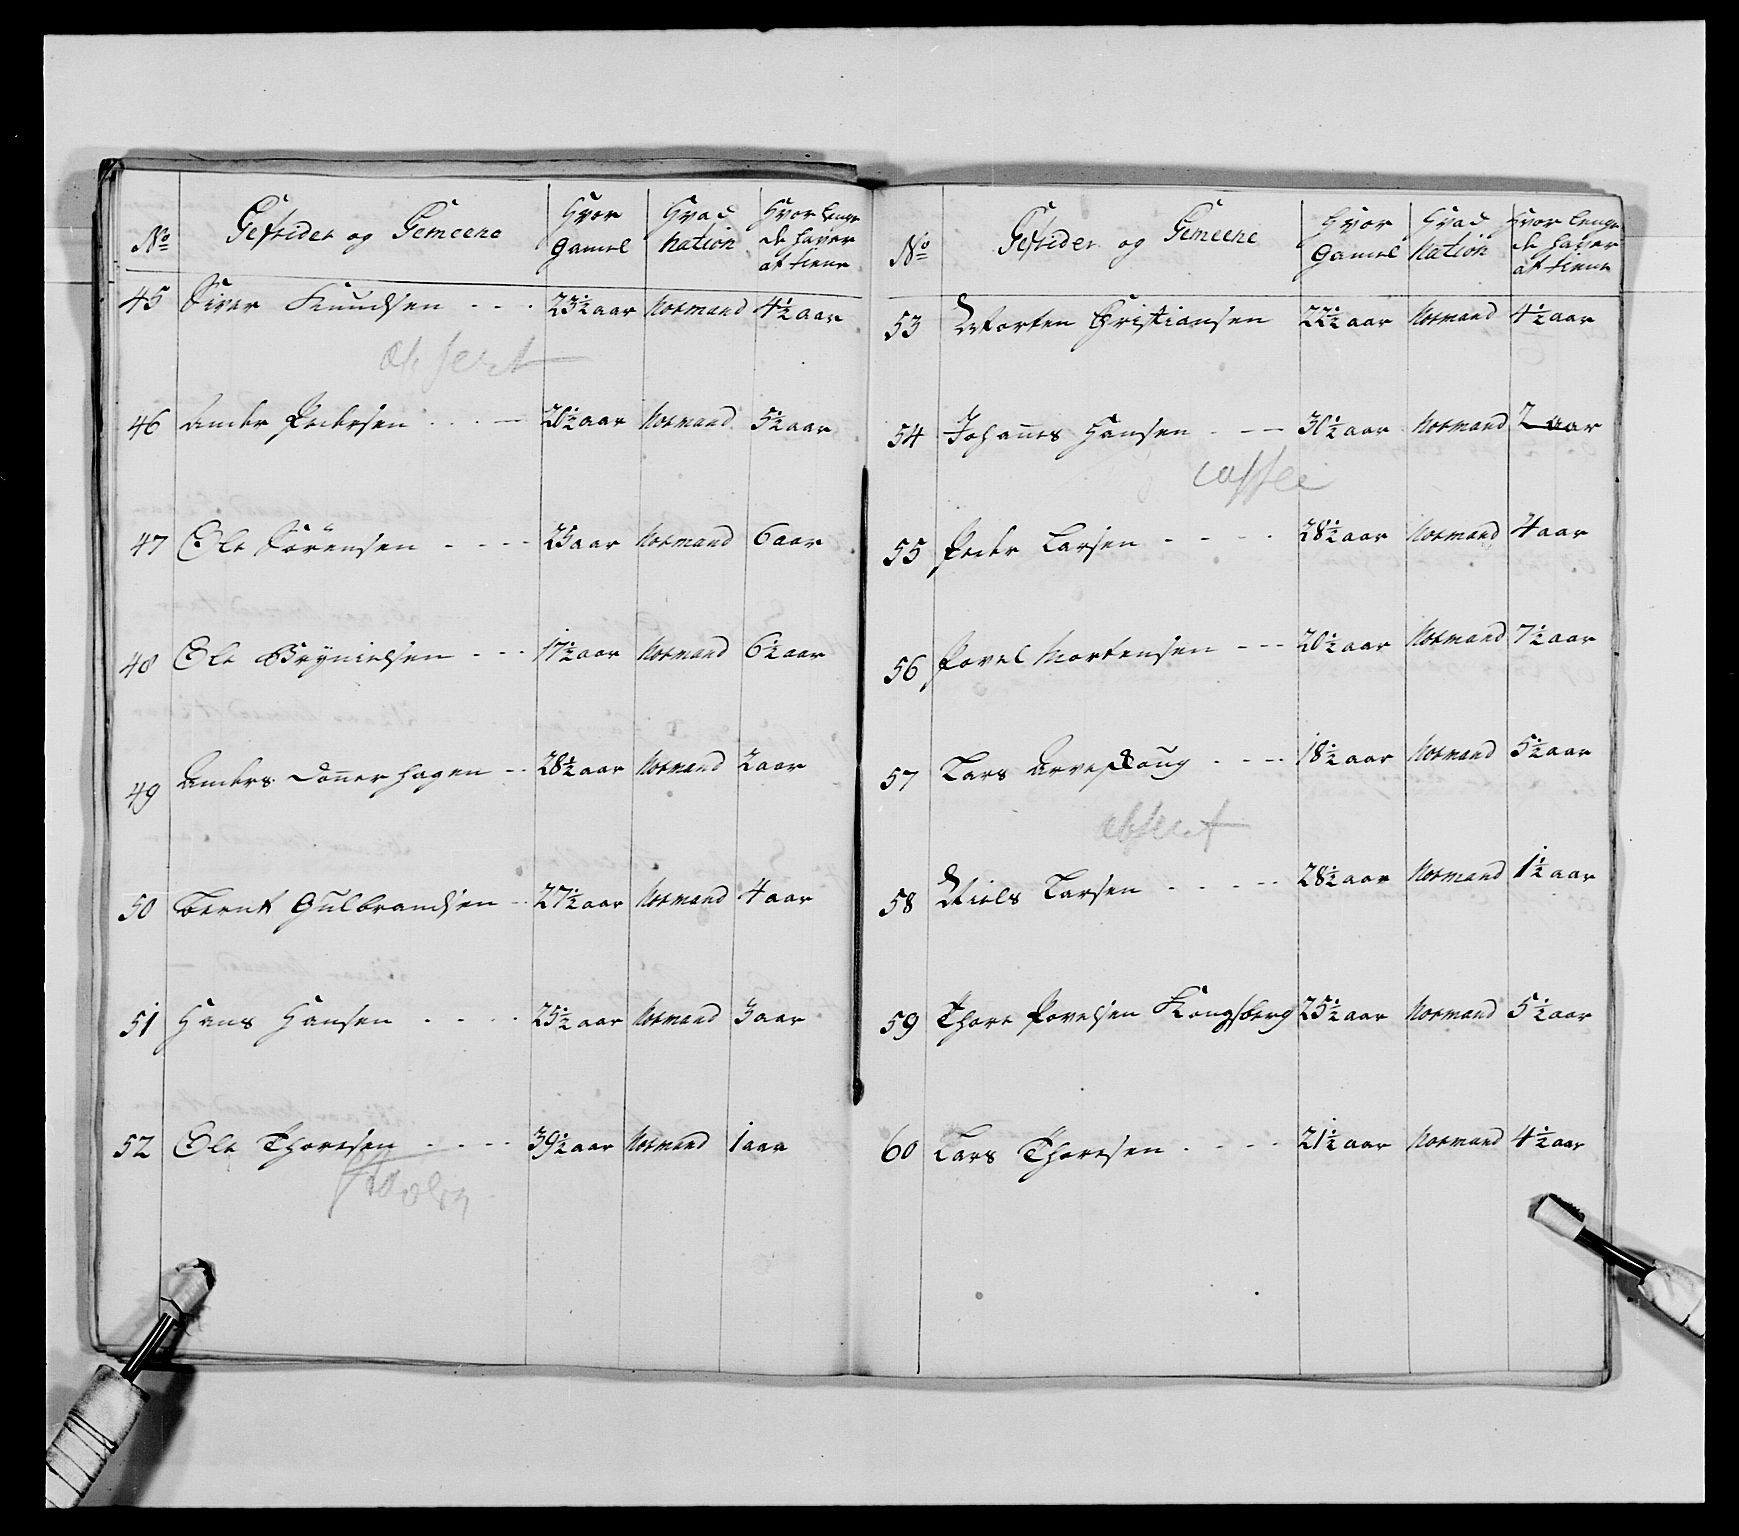 No Gefrider og Gemeene Hvor Gamel Hvad Nation Hvor lenge de haver at tiene
45 Siver Knudsen - - - 23½ aar Normand 4½ aar
absent
46 Ander Pedersen - - - 20½ aar Normand 5½ aar
47 Ole Sörensen - - - - 25 aar Normand 6 aar
48 Ole Brÿnielsen - - - 17½ aar Normand 6½ aar
49 Anders Donnerhagen - - 28½ aar Normand 2 aar
50 Bernt Gulbrandsen - - 27½ aar Normand 4 aar
51 Hans Hansen - - - - 25½ aar Normand 3 aar
52 Ole Thoresen - - - - 39½ aar Normand 1 aar
No Gefrider og Gemeene Hvor Gamel Hvad Nation Hvor lenge de haver at tiene
53 Morten Christiansen 22½ aar Normand 4½ aar
54 Johannes Hansen - - - 30½ aar Normand 2 aar
cassee
55 Peder Larsen - - - - 28½ aar Normand 4 aar
56 Povel Mortensen - - - 20½ aar Normand 7½ aar
57 Lars Arveschoug - - - - 18½ aar Normand 5½ aar
absent
58 Niels Larsen - - - - - 28½ aar Normand 1½ aar
59 Thore Povelsen Kongsberg 25½ aar Normand 5½ aar
60 Lars Thoresen - - - - 21½ aar Normand 4½ aar